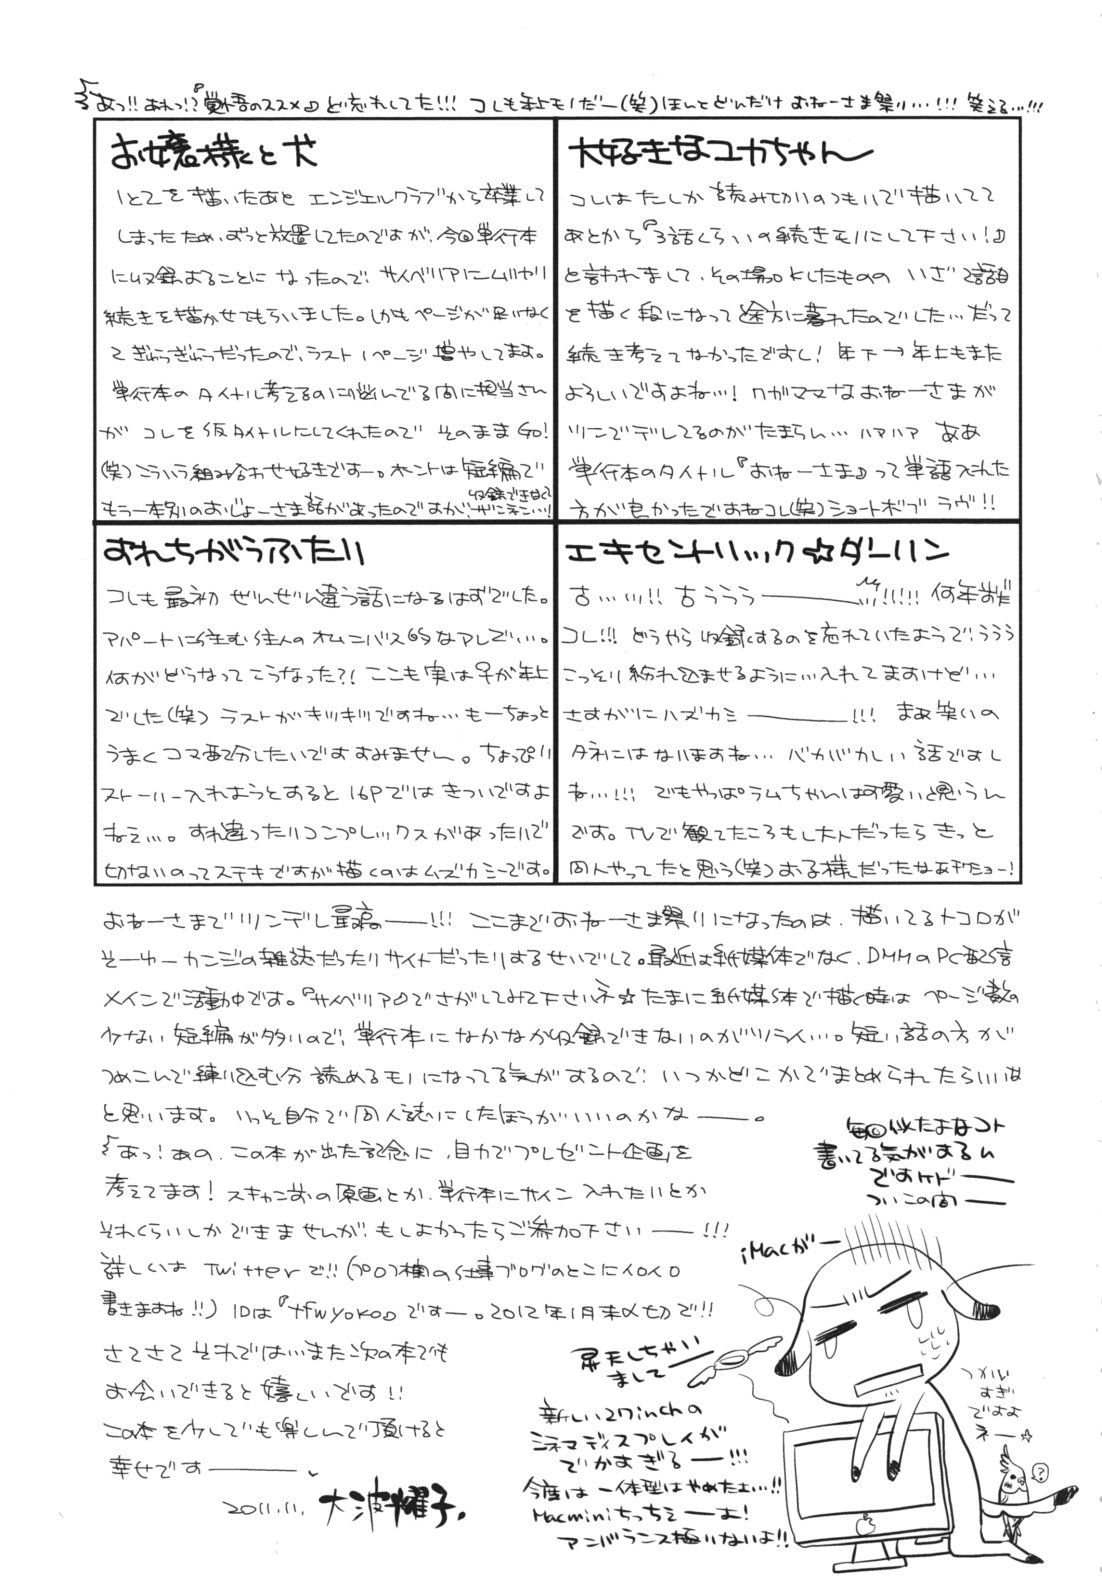 あっ!! あれっ!?『覚悟のススメ』ど忘れしてた!!! コレも年上モノだー(笑)ほんとどんだけおねーさま祭り…!!! 笑える…!!!
お嬢様と犬
1と2を描いたあと エンジェルクラブから卒業して
しまったため、ずっと放置してたのですが、今回単行本
に収録することに なったので、サイベリアにムリヤリ
続きを描かせてもらいました。しかもページが足りなく
てぎゅうぎゅうだったので、ラスト1ページ増やしてます。
単行本のタイトル考えるのに悩んでる間に担当さん
が コレを仮タイトルにしてくれたので そのままGO!
(笑)こういう組み合わせ好きですー。ホントは短編で
もう一本別のおじょーさま話があったのですが、収録できなくてザンネン…!
大好きなユカちゃん
コレはたしか 読み切りのつもりで描いてて
あとから『3話くらいの続きモノにして下さい!』
と言われまして、その場OKしたものの いざ 2話目
を描く段になって途方に暮れたのでした…だって
続き考えてなかったですし! 年下→年上もまた
よろしいですよね…! ワガママなおねーさまが
ツンでデレてるのがたまらん… ハァハァ ああ
単行本のタイトル『おねーさま』って単語入れた
方が良かったですねコレ(笑)ショートボブ ラヴ!!
すれちがうふたり
コレも最初 ぜんぜん違う話になるはずでした。
アパートに住む住人のオムニバス的なアレで…。
何がどうなってこうなった?! ここも実は♀が年上
でした(笑)ラストがキツキツですね… もーちょっと
うまくコマ配分したいですすみません。ちょっぴり
ストーリー入れようとすると 16Pではきついですよ
ねぇ…。すれ違ったりコンプレックスがあったりで
切ないのってステキですが描くのはムズカシーです。
エキセントリック☆ダーリン
古…ッ!! 古うううー――…!!!!! 何年前だ
コレ!!! どうやら収録するのを忘れていたようで、ううう
こっそり紛れ込ませるように…入れてますけど…
さすがにハズカシー――!!! まぁ笑いの
タネにはなりますね… バカバカしい話ですし
ね…!!! でもやっぱラムちゃんは可愛いと思うん
です。TVで観てたころもし大人だったらきっと
同人やってたと思う(笑)お子様だったなあチョー!
おねーさまでツンデレ最高―――!!! ここまでおねーさま祭りになったのは、描いてるトコロが
そーゆーカンジの雑誌だったりサイトだったりするせいでして。最近は紙媒体でなく、DMMのPC配信
メインで活動中です。『サイベリア』でさがしてみて下さいネ☆ たまに紙媒体で描く時は ページ数の
少ない短編が多いので、単行本になかなか収録できないのがツライ…。短い話の方が
つめこんで練り込む分 読めるモノになってる気がするので、いつかどこかでまとめられたらいいな
と思います。いっそ自分で同人誌にしたほうがいいのかな――。
あっ! あの、この本が出た記念に、自力でプレゼント企画を
考えてます! スキャン前の原画とか、単行本にサイン 入れたりとか
それくらいしかできませんが、もしよかったらご参加下さい――!!!
詳しくは Twitterで!! (プロフ欄の仕事ブログのとこにイロイロ
書きますね!!) IDは『tfwyoko』ですー。2012年1月末〆切で!!
さてさて それでは…また次の本でも
お会いできると嬉しいです!!
この本を少しでも楽しんで頂けると
幸せです―――。
2011.11. 大波耀子.
毎回似たよなコト
書いてる気がするん
ですケドー
ついこの間――
iMacがー
昇天しちゃい
まして
新しい27inchの
シネマディスプレイが
でかすぎるー―!!!
今度は一体型はやめたよ…!!
Macminiちっちぇーよ!
アンバランス極りないよ!!
つかい
すぎ
ですよ
ネー☆
?